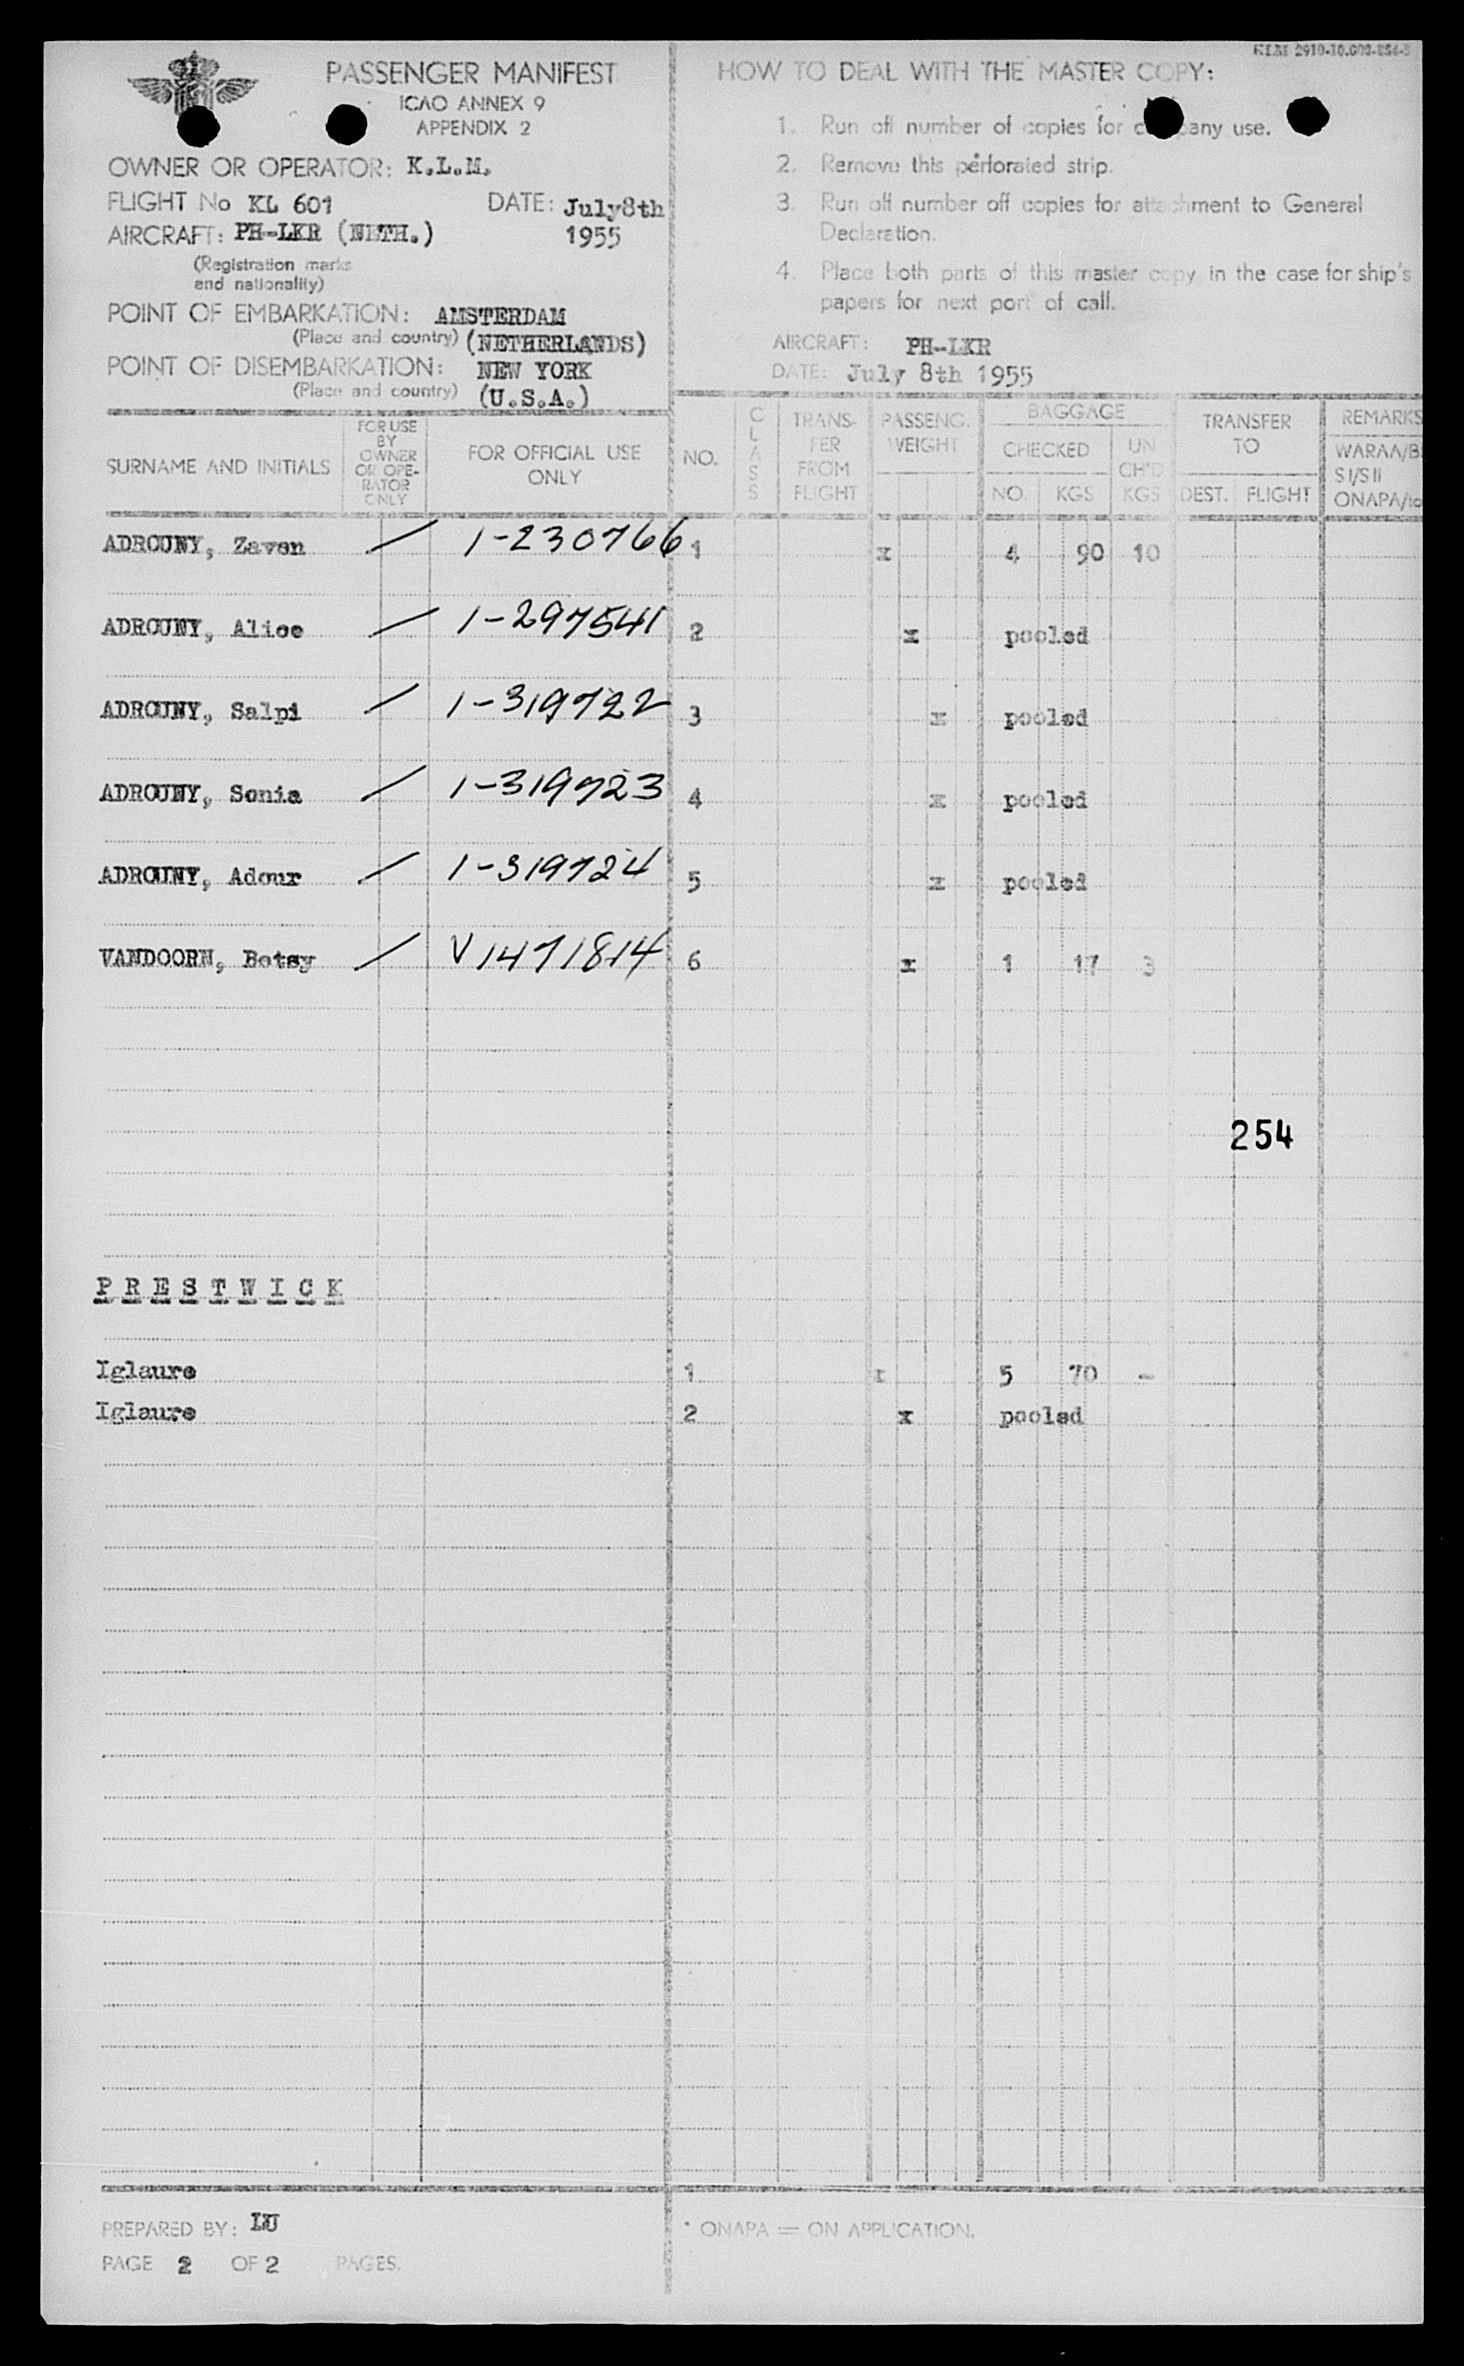 PASSENGER MANIFEST
ICAO ANNEX 9
APPENDIX 2
OWNER OR OPERATOR: K.L.M.
FLIGHT No KL 601 DATE: July8th
AIRCRAFT: PH-LKR (NETH.) 1955
(Registration marks
and nationality)
POINT OF EMBARKATION: AMSTERDAM
(Place and country) (NETHERLANDS)
POINT OF DISEMBARKATION: NEW YORK
(Place and country) (U.S.A.)
HOW TO DEAL WITH THE MASTER COPY:
1. Run off number of copies for company use.
2. Remove this perforated strip.
3. Run off number off copies for attachment to General
Declaration.
4. Place both parts of this master copy in the case for ship's
papers for next port of call.
AIRCRAFT: PH-LKR
DATE: July 8th 1955
SURNAME AND INITIALS
FOR USE
BY
OWNER
OR OPE-
RATOR
ONLY
FOR OFFICIAL USE
ONLY
NO.
CLASS
TRANS-
FER
FROM
FLIGHT
PASSENG.
WEIGHT
BAGGAGE
CHECKED
NO. KGS
UN
CH'D
KGS
TRANSFER
TO
DEST. FLIGHT
REMARKS
S I/S II
ADROUNY, Zaven / 1-230766 1 x 4 90 10
ADROUNY, Alice / 1-297541 2 x pooled
ADROUNY, Salpi / 1-319722 3 x pooled
ADROUNY, Sonia / 1-319723 4 x pooled
ADROUNY, Adour / 1-319724 5 x pooled
VANDOORN, Betsy / V1471814 6 x 1 17 3
254
PRESTWICK
Iglaure 1 x 5 70 -
Iglaure 2 x pooled
PREPARED BY: LU
PAGE 2 OF 2 PAGES.
* ONAPA = ON APPLICATION.